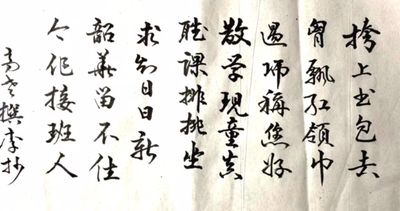 挎上书包去
胸飘红领巾
遇师称您好
散学现童真
聴课排排坐
求知日日新
韶華留不住
今作接班人
高撰李抄